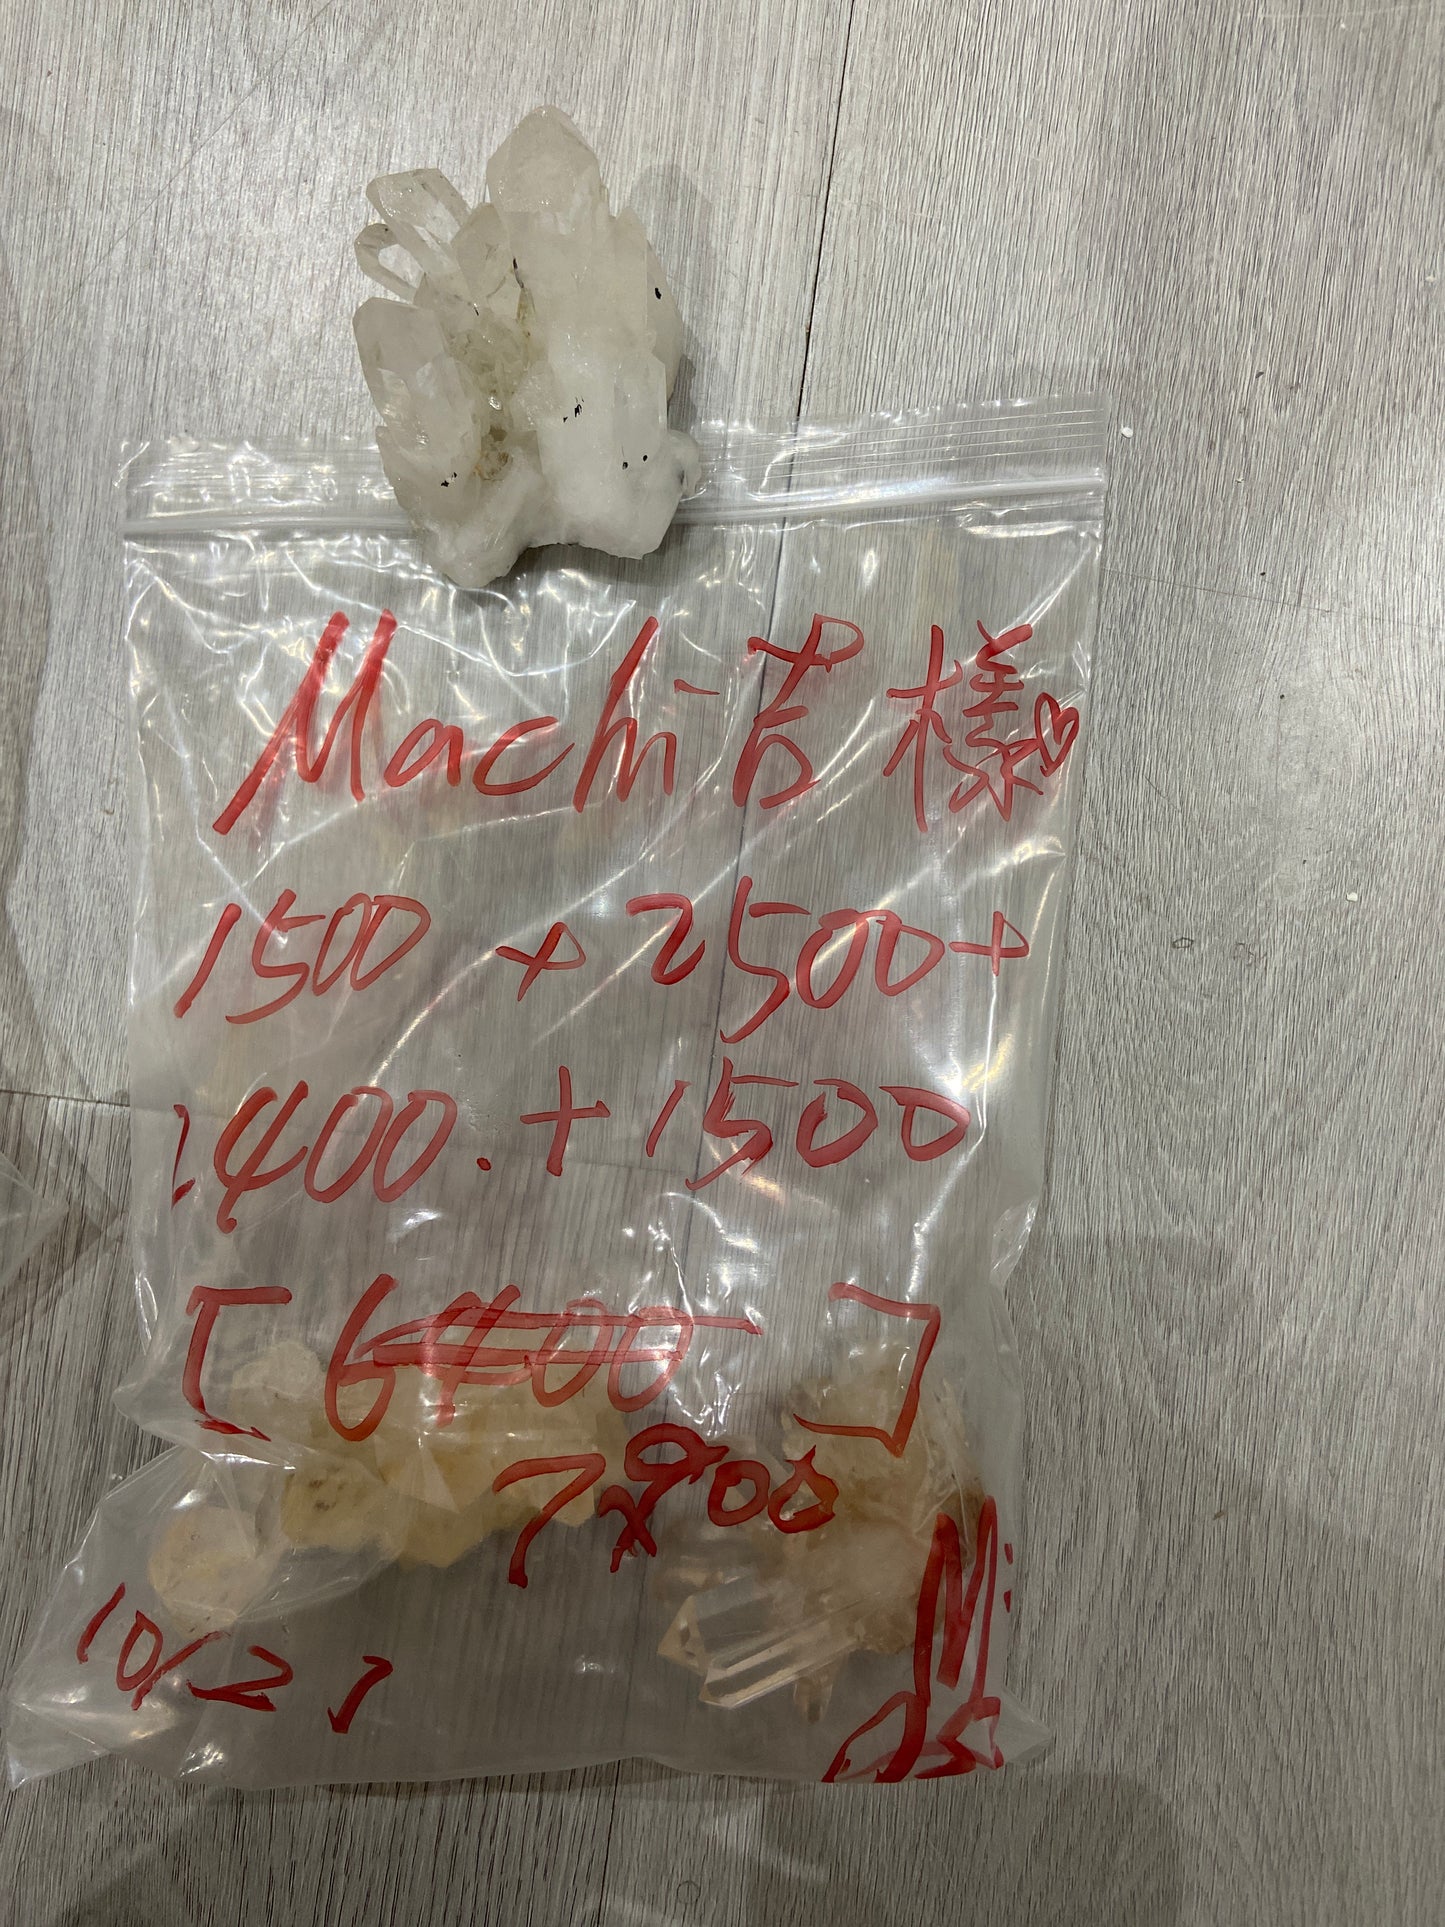 Machi吉様♡
1500 + 2500+
2400. + 1500
[ 6400 ]
7900
10/27